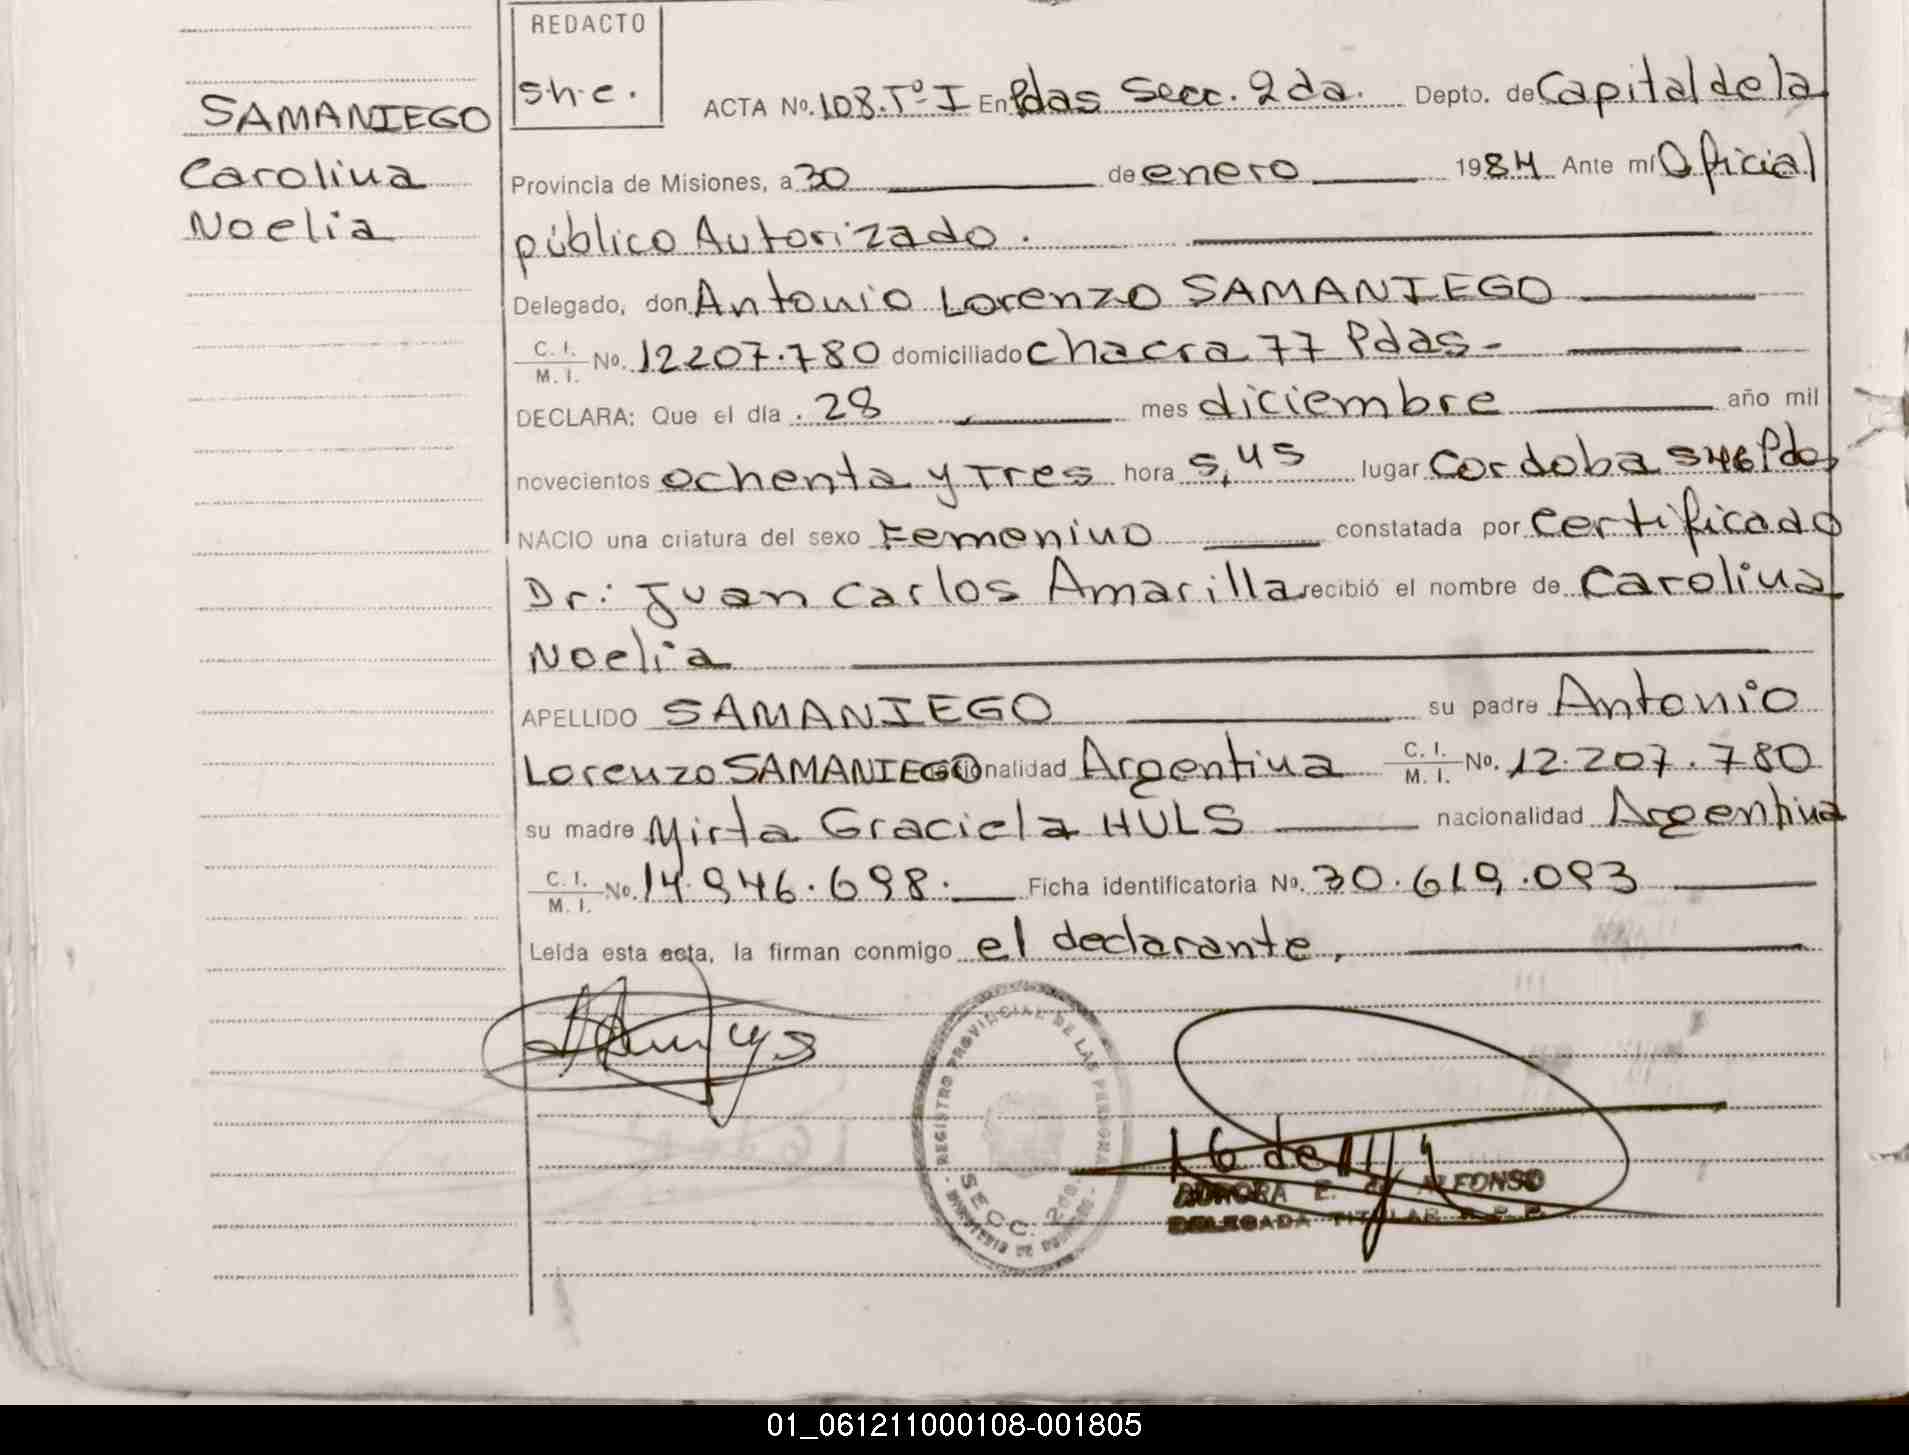 REDACTO
sh.e.
SAMANIEGO
Carolina
Noelia
ACTA No. 108.Tº-I En Pdas Secc. 2da. Depto. de Capital de la
Provincia de Misiones, a 30 de enero 1984 Ante mí Oficial
público Autorizado.
Delegado, don Antonio Lorenzo SAMANIEGO
C. I. M. I. No. 12207.780 domiciliado chacra 77 Pdas-
DECLARA: Que el día 28 mes diciembre año mil
novecientos ochenta y Tres hora 5,45 lugar Cordoba 546 Pdas
NACIO una criatura del sexo Femenino constatada por Certificado
Dr: Juan Carlos Amarilla recibió el nombre de Carolina
Noelia
APELLIDO SAMANIEGO su padre Antonio
Lorenzo SAMANIEGO nacionalidad Argentina C. I. M. I. No. 12.207.780
su madre Mirta Graciela HULS nacionalidad Argentina
C. I. M. I. No. 14.946.698. Ficha identificatoria No. 30.619.093
Leída esta acta, la firman conmigo el declarante,
REGISTRO PROVINCIAL DE LAS PERSONAS
SECC. 2da
AURORA E. ALFONSO
DELEGADA TITULAR R. P. P.
01_061211000108-001805